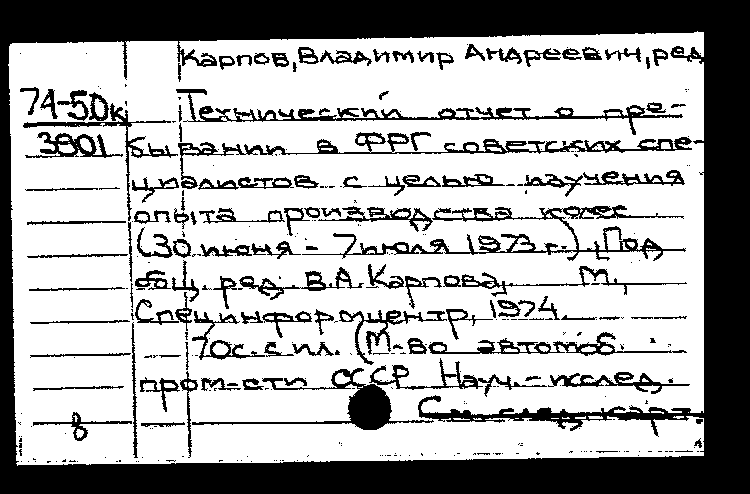 Карпов, Владимир Андреевич, ред.
74-5.0к Технический отчет о пре-
3801 бывании в ФРГ советских спе-
циалистов с целью изучения
опыта производства колес
(30 июня - 7 июля 1973 г.). Под
общ. ред. В.А. Карпова, М.,
Специнформцентр, 1974.
70с. с ил. (М-во автомоб.
пром-сти СССР Науч.-исслед.
См. след. карт.
8